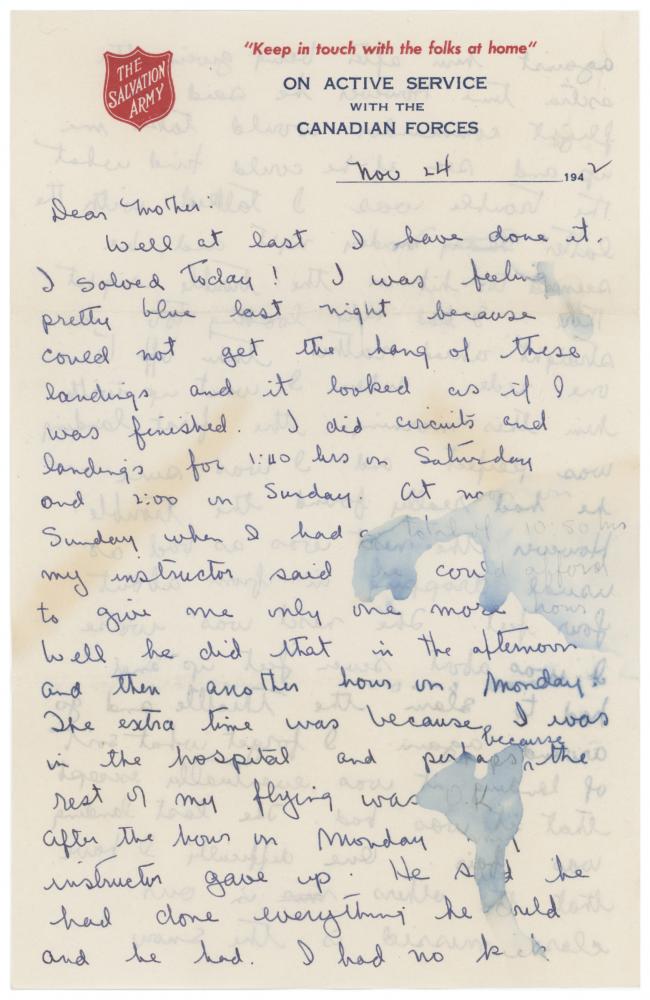 THE
SALVATION
ARMY
"Keep in touch with the folks at home"
ON ACTIVE SERVICE
WITH THE
CANADIAN FORCES
Nov 24 1942
Dear Mother:
Well at last I have done it.
I soloed Today! I was feeling
pretty blue last night because
could not get the hang of these
landings and it looked as if I
was finished. I did circuits and
landings for 1:40 hrs on Saturday
and 2:00 on Sunday. At noon
Sunday when I had a total of 10:50 hrs
my instructor said he could afford
to give me only one more hour
Well he did that in the afternoon
and then another hour on Monday.
The extra time was because I was
in the hospital and perhaps because the
rest of my flying was O.K.
After the hour on Monday my
instructor gave up. He said he
had done everything he could
and he had. I had no